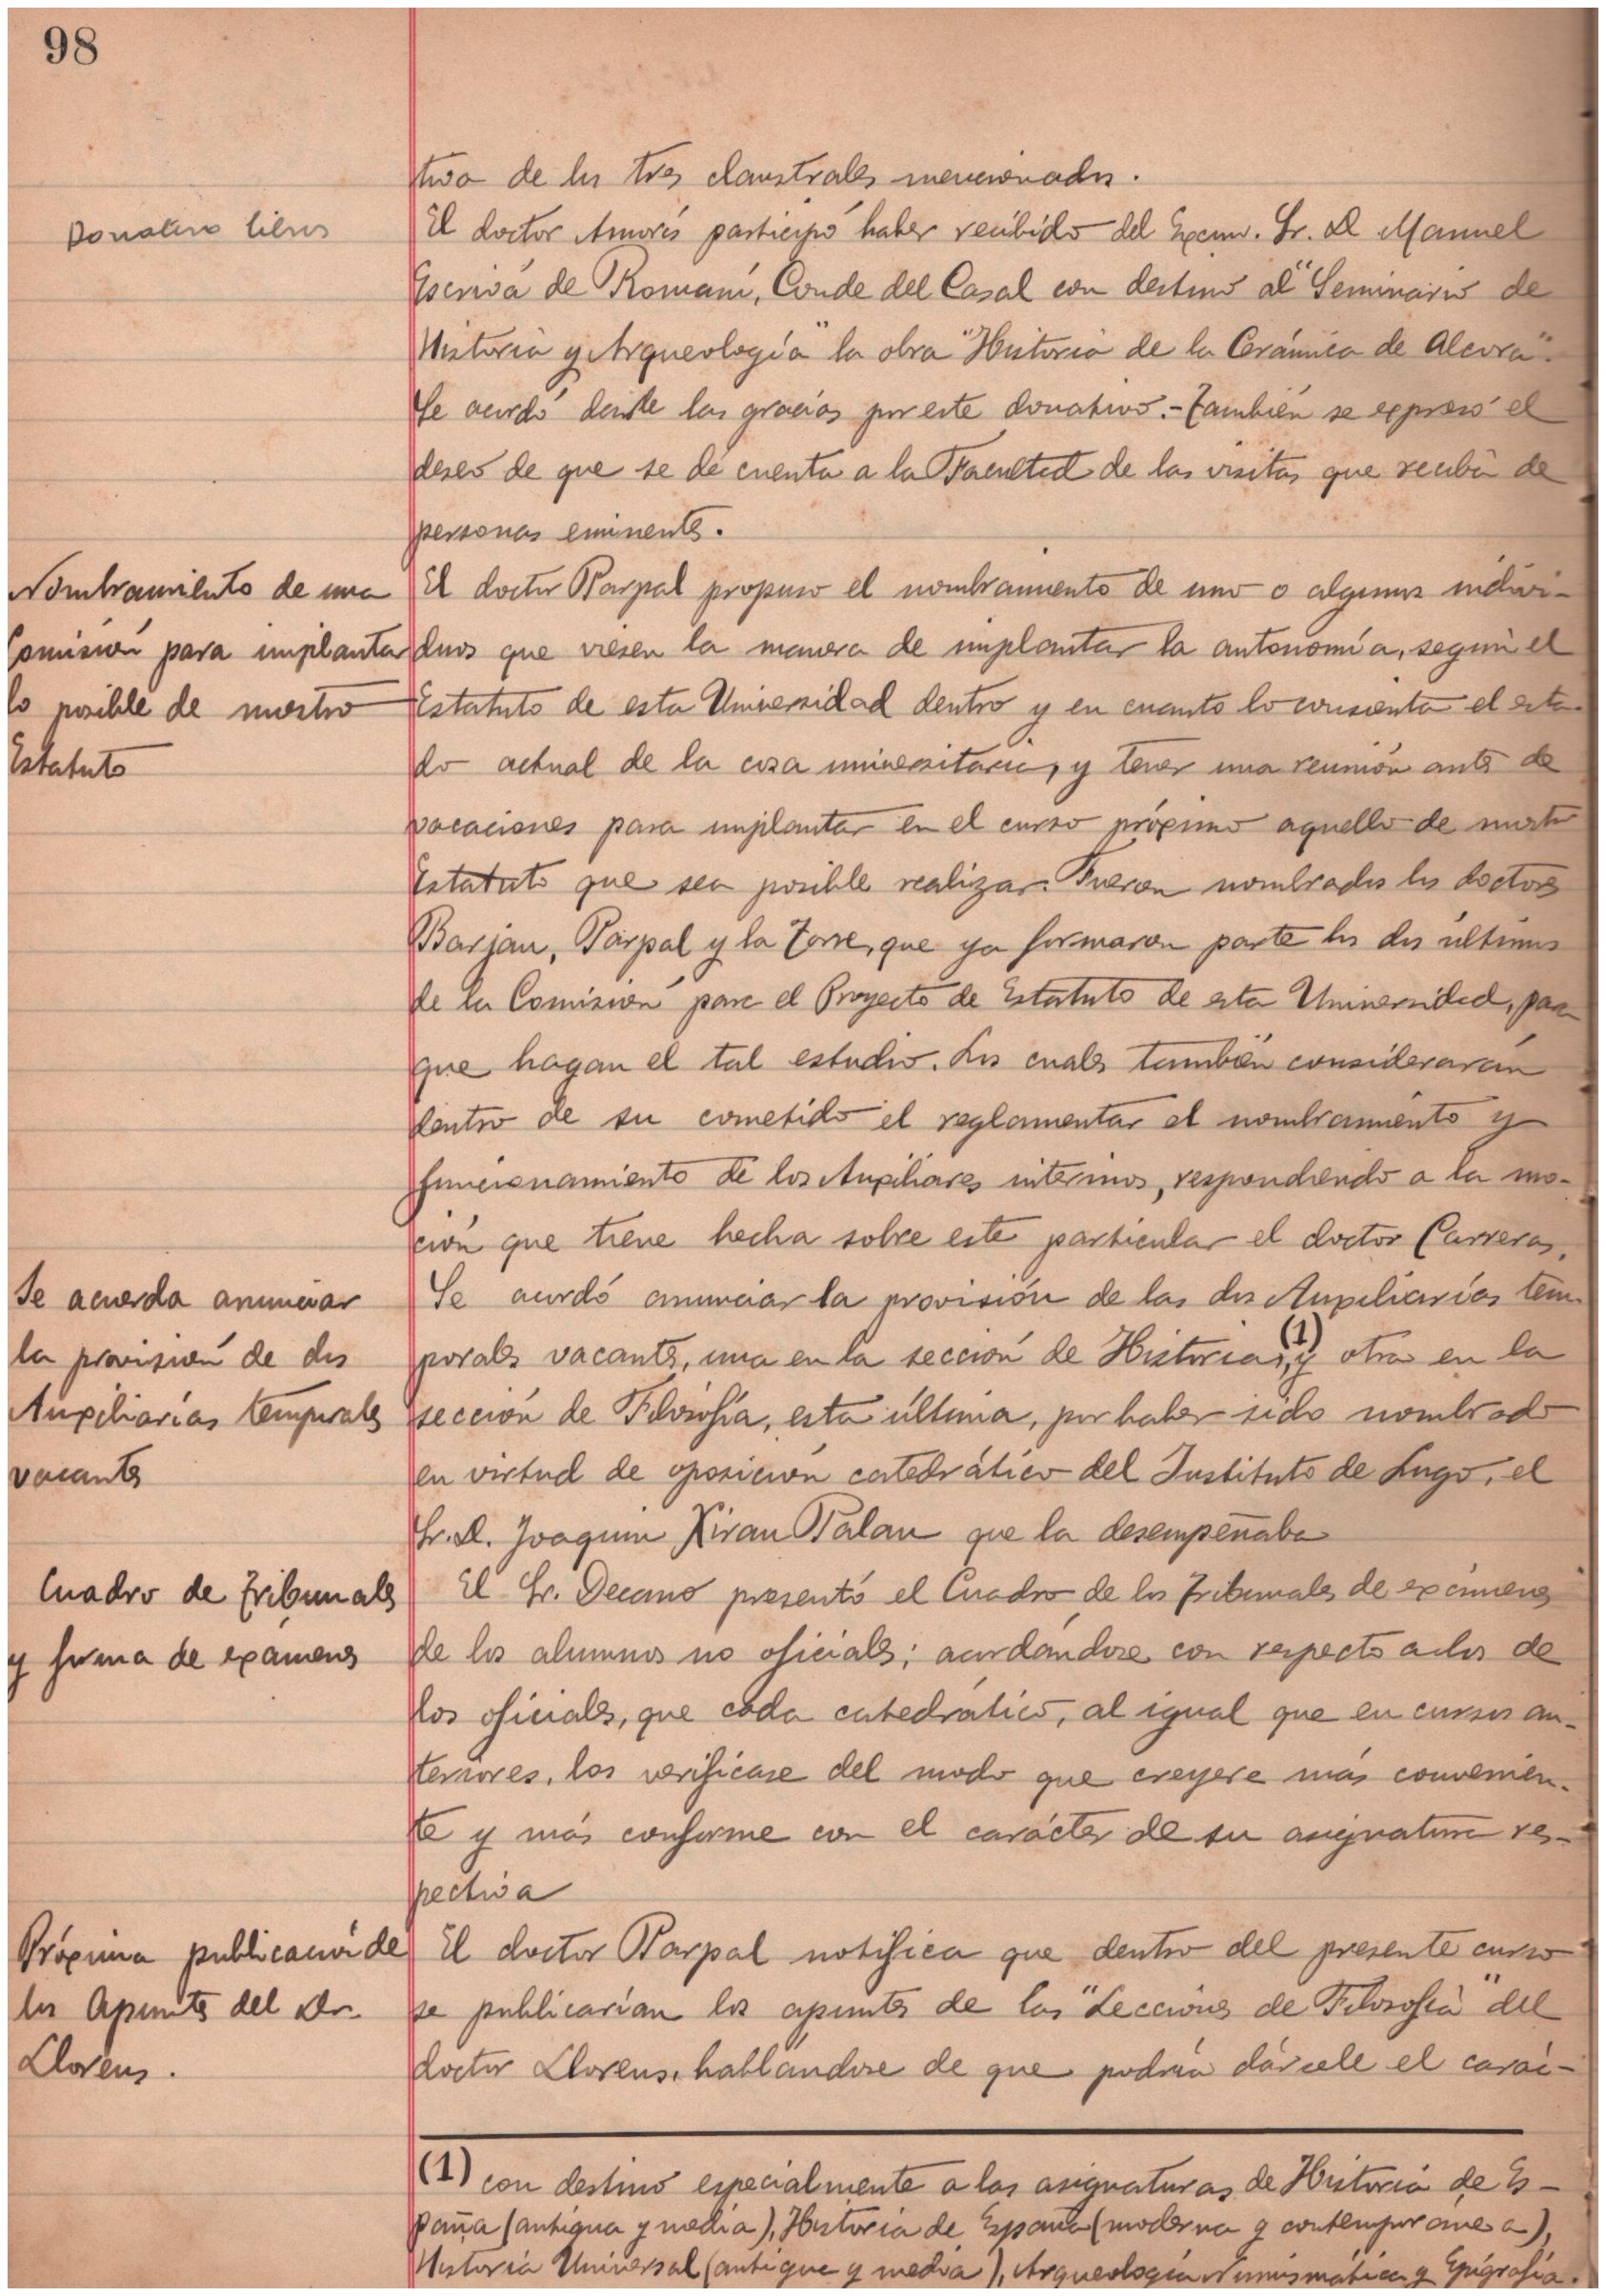 98
tiva de los tres claustrales mencionados.
Donativo libros
El doctor Amorós participó haber recibido del Excmo. Sr. D. Manuel
Escrivá de Romaní, Conde del Casal con destino al "Seminario de
Historia y Arqueología" la obra "Historia de la Cerámica de Alcora".
Se acordó darle las gracias por este donativo.- También se expresó el
deseo de que se dé cuenta a la Facultad de las visitas que reciba de
personas eminentes.
Nombramiento de una
Comisión para implantar
lo posible de nuestro
Estatuto
El doctor Parpal propuso el nombramiento de uno o algunos indivi-
duos que viesen la manera de implantar la autonomía, según el
Estatuto de esta Universidad dentro y en cuanto lo consienta el esta-
do actual de la cosa universitaria, y tener una reunión antes de
vacaciones para implantar en el curso próximo aquello de nuestro
Estatuto que sea posible realizar. Fueron nombrados los doctores
Barjau, Parpal y la Torre, que ya formaron parte los dos últimos
de la Comisión para el Proyecto de Estatuto de esta Universidad, para
que hagan el tal estudio. Los cuales también considerarán
dentro de su cometido el reglamentar el nombramiento y
funcionamiento de los Auxiliares interinos, respondiendo a la mo-
ción que tiene hecha sobre este particular el doctor Carreras.
Se acuerda anunciar
la provisión de dos
Auxiliarías temporales
vacantes
Se acordó anunciar la provisión de las dos Auxiliarías tem-
porales vacantes, una en la sección de Historia, (1) y otra en la
sección de Filosofía, esta última, por haber sido nombrado
en virtud de oposición catedrático del Instituto de Lugo, el
Sr. D. Joaquin Xirau Palau que la desempeñaba
Cuadro de Tribunales
y forma de exámenes
El Sr. Decano presentó el Cuadro de los Tribunales de exámenes
de los alumnos no oficiales; acordándose con respecto a los de
los oficiales, que cada catedrático, al igual que en cursos an-
teriores, los verificase del modo que creyere más convenien-
te y más conforme con el carácter de su asignatura res-
pectiva
Próxima publicación de
los Apuntes del Dr.
Llorens.
El doctor Parpal notifica que dentro del presente curso
se publicarían los apuntes de las "Lecciones de Filosofía" del
doctor Llorens, hablándose de que podría dársele el carác-
(1) con destino especialmente a las asignaturas de Historia de Es-
paña (antigua y media), Historia de España (moderna y contemporanea),
Historia Universal (antigua y media), Arqueología Numismática y Epigrafía.